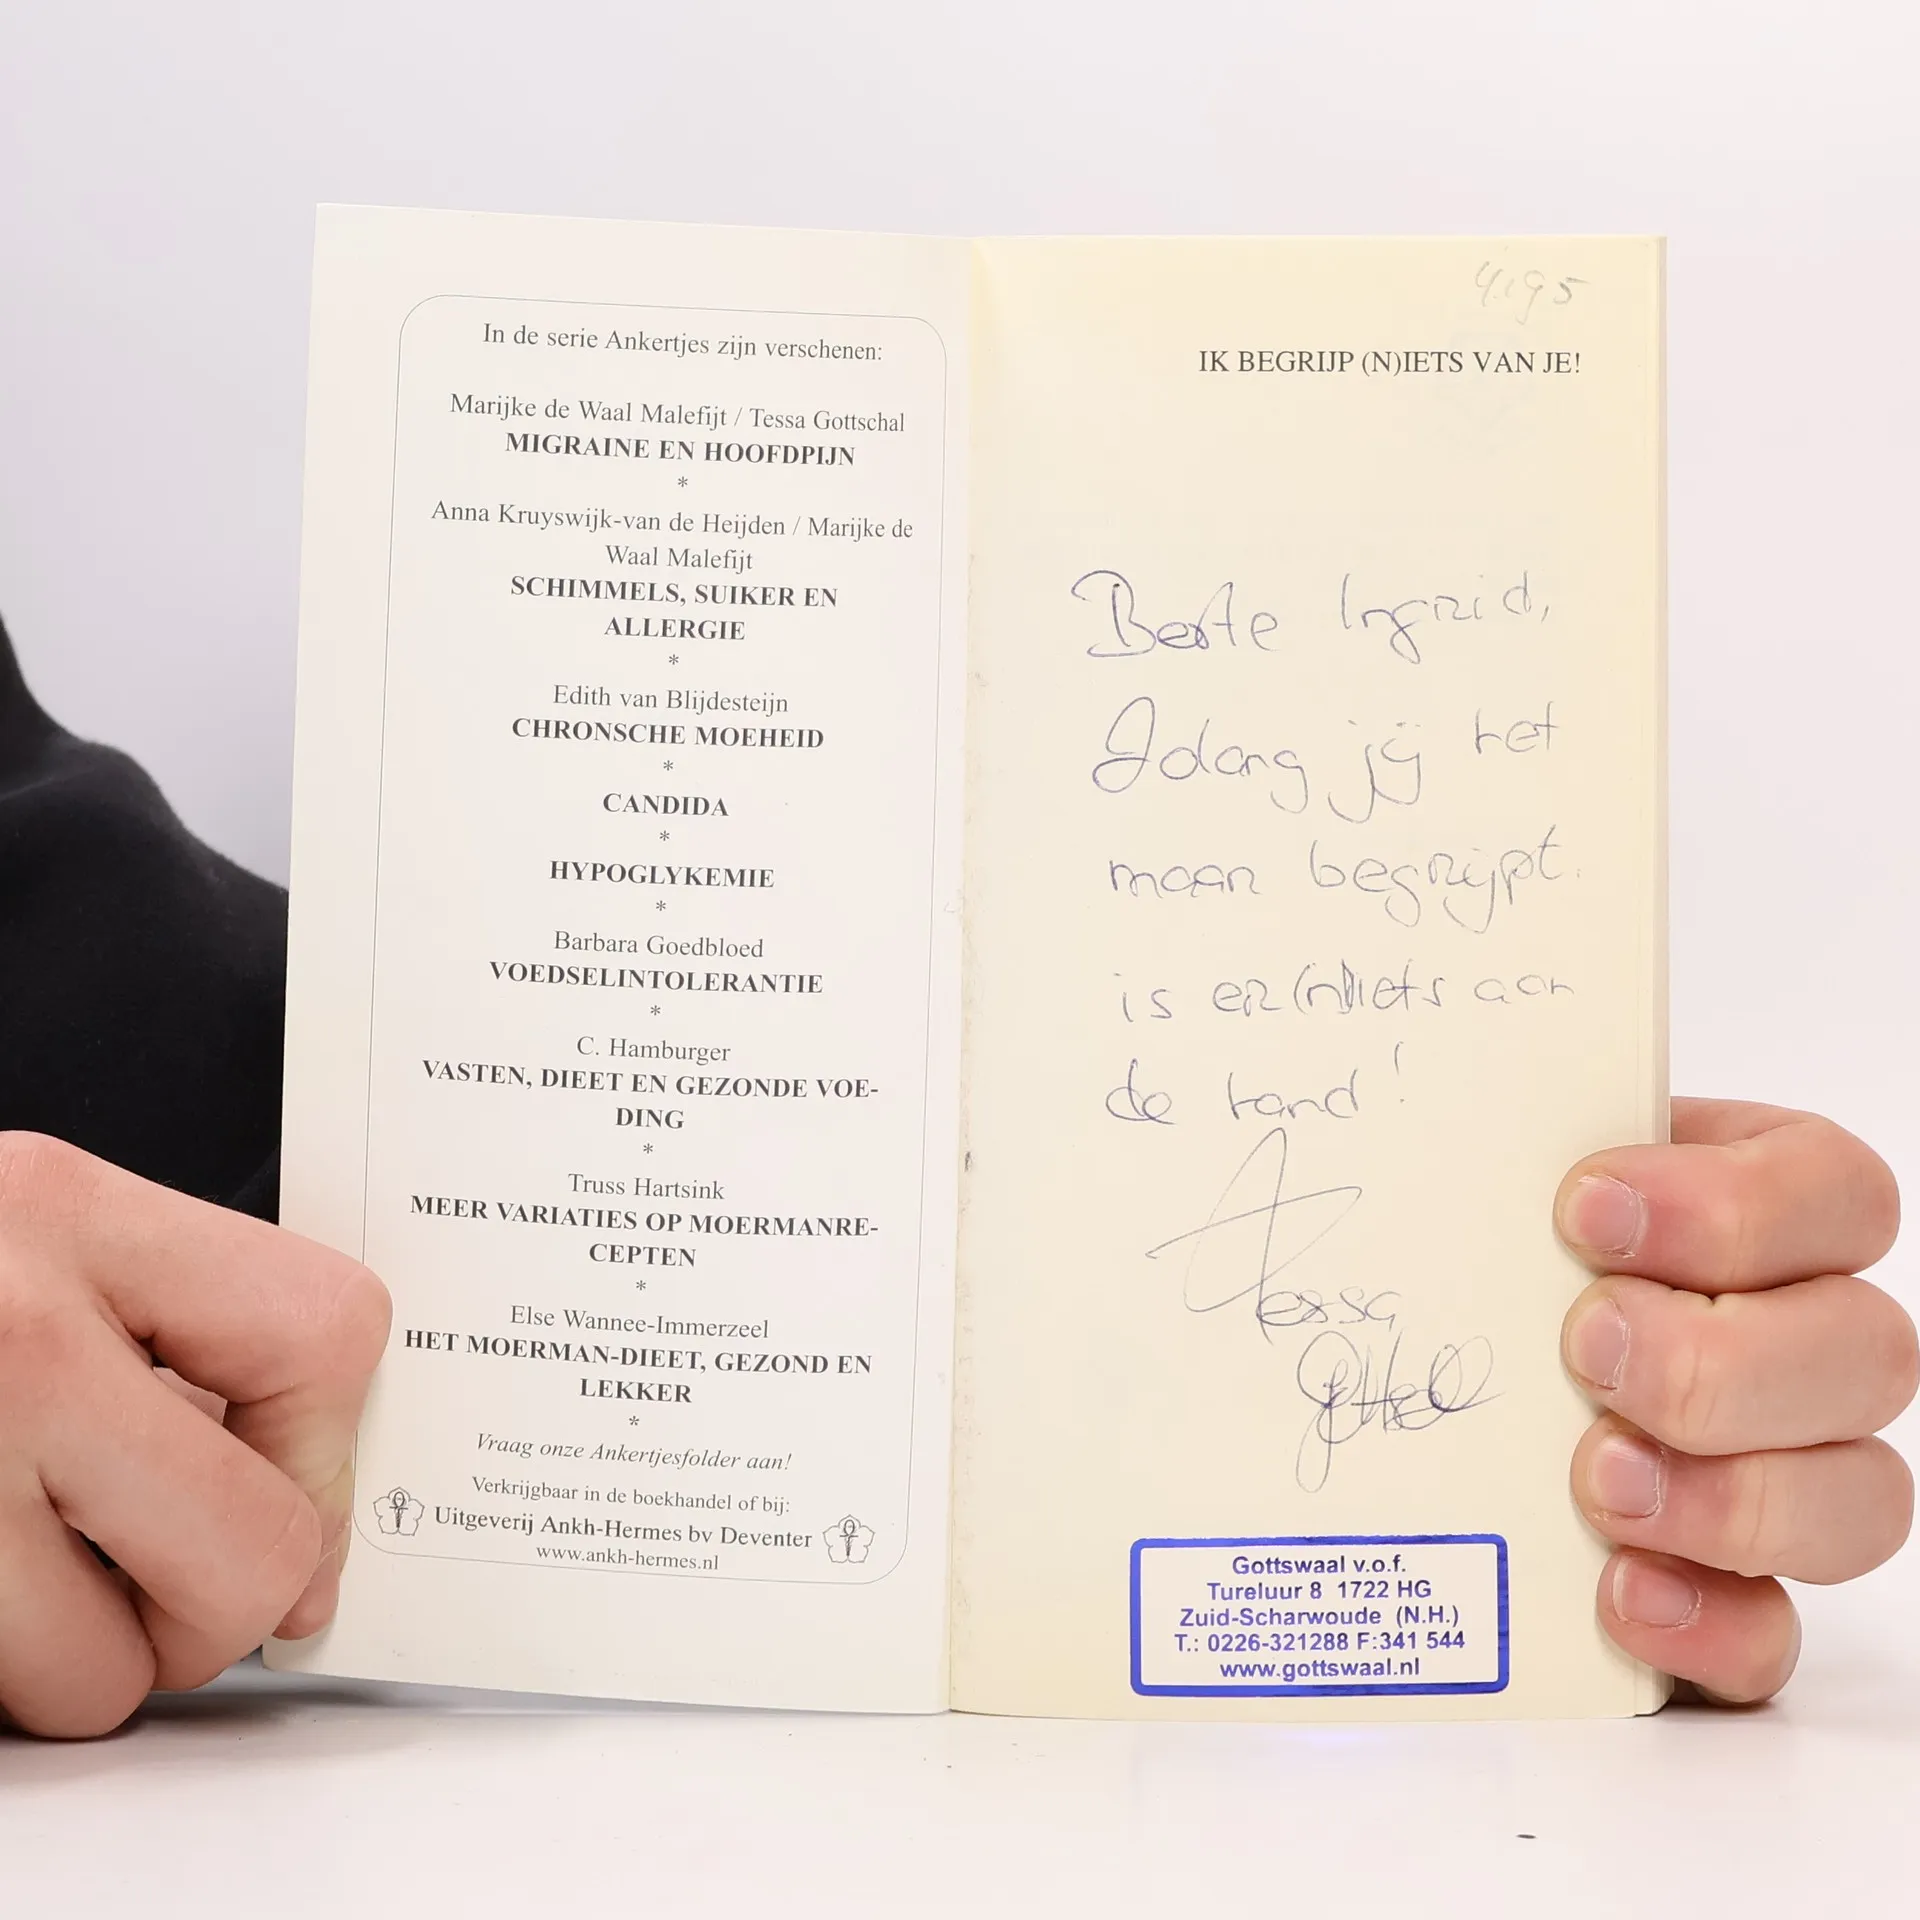 In de serie Ankertjes zijn verschenen:
Marijke de Waal Malefijt / Tessa Gottschal
MIGRAINE EN HOOFDPIJN
*
Anna Kruyswijk-van de Heijden / Marijke de
Waal Malefijt
SCHIMMELS, SUIKER EN
ALLERGIE
*
Edith van Blijdesteijn
CHRONSCHE MOEHEID
*
CANDIDA
*
HYPOGLYKEMIE
*
Barbara Goedbloed
VOEDSELINTOLERANTIE
*
C. Hamburger
VASTEN, DIEET EN GEZONDE VOE-
DING
*
Truss Hartsink
MEER VARIATIES OP MOERMANRE-
CEPTEN
*
Else Wannee-Immerzeel
HET MOERMAN-DIEET, GEZOND EN
LEKKER
*
Vraag onze Ankertjesfolder aan!
Verkrijgbaar in de boekhandel of bij:
Uitgeverij Ankh-Hermes bv Deventer
www.ankh-hermes.nl
4.95
IK BEGRIJP (N)IETS VAN JE!
Beste Ingrid,
Zolang jij het
maar begrijpt.
is er (n)iets aan
de hand!
Tessa
Gottschal
Gottswaal v.o.f.
Tureluur 8 1722 HG
Zuid-Scharwoude (N.H.)
T.: 0226-321288 F:341 544
www.gottswaal.nl